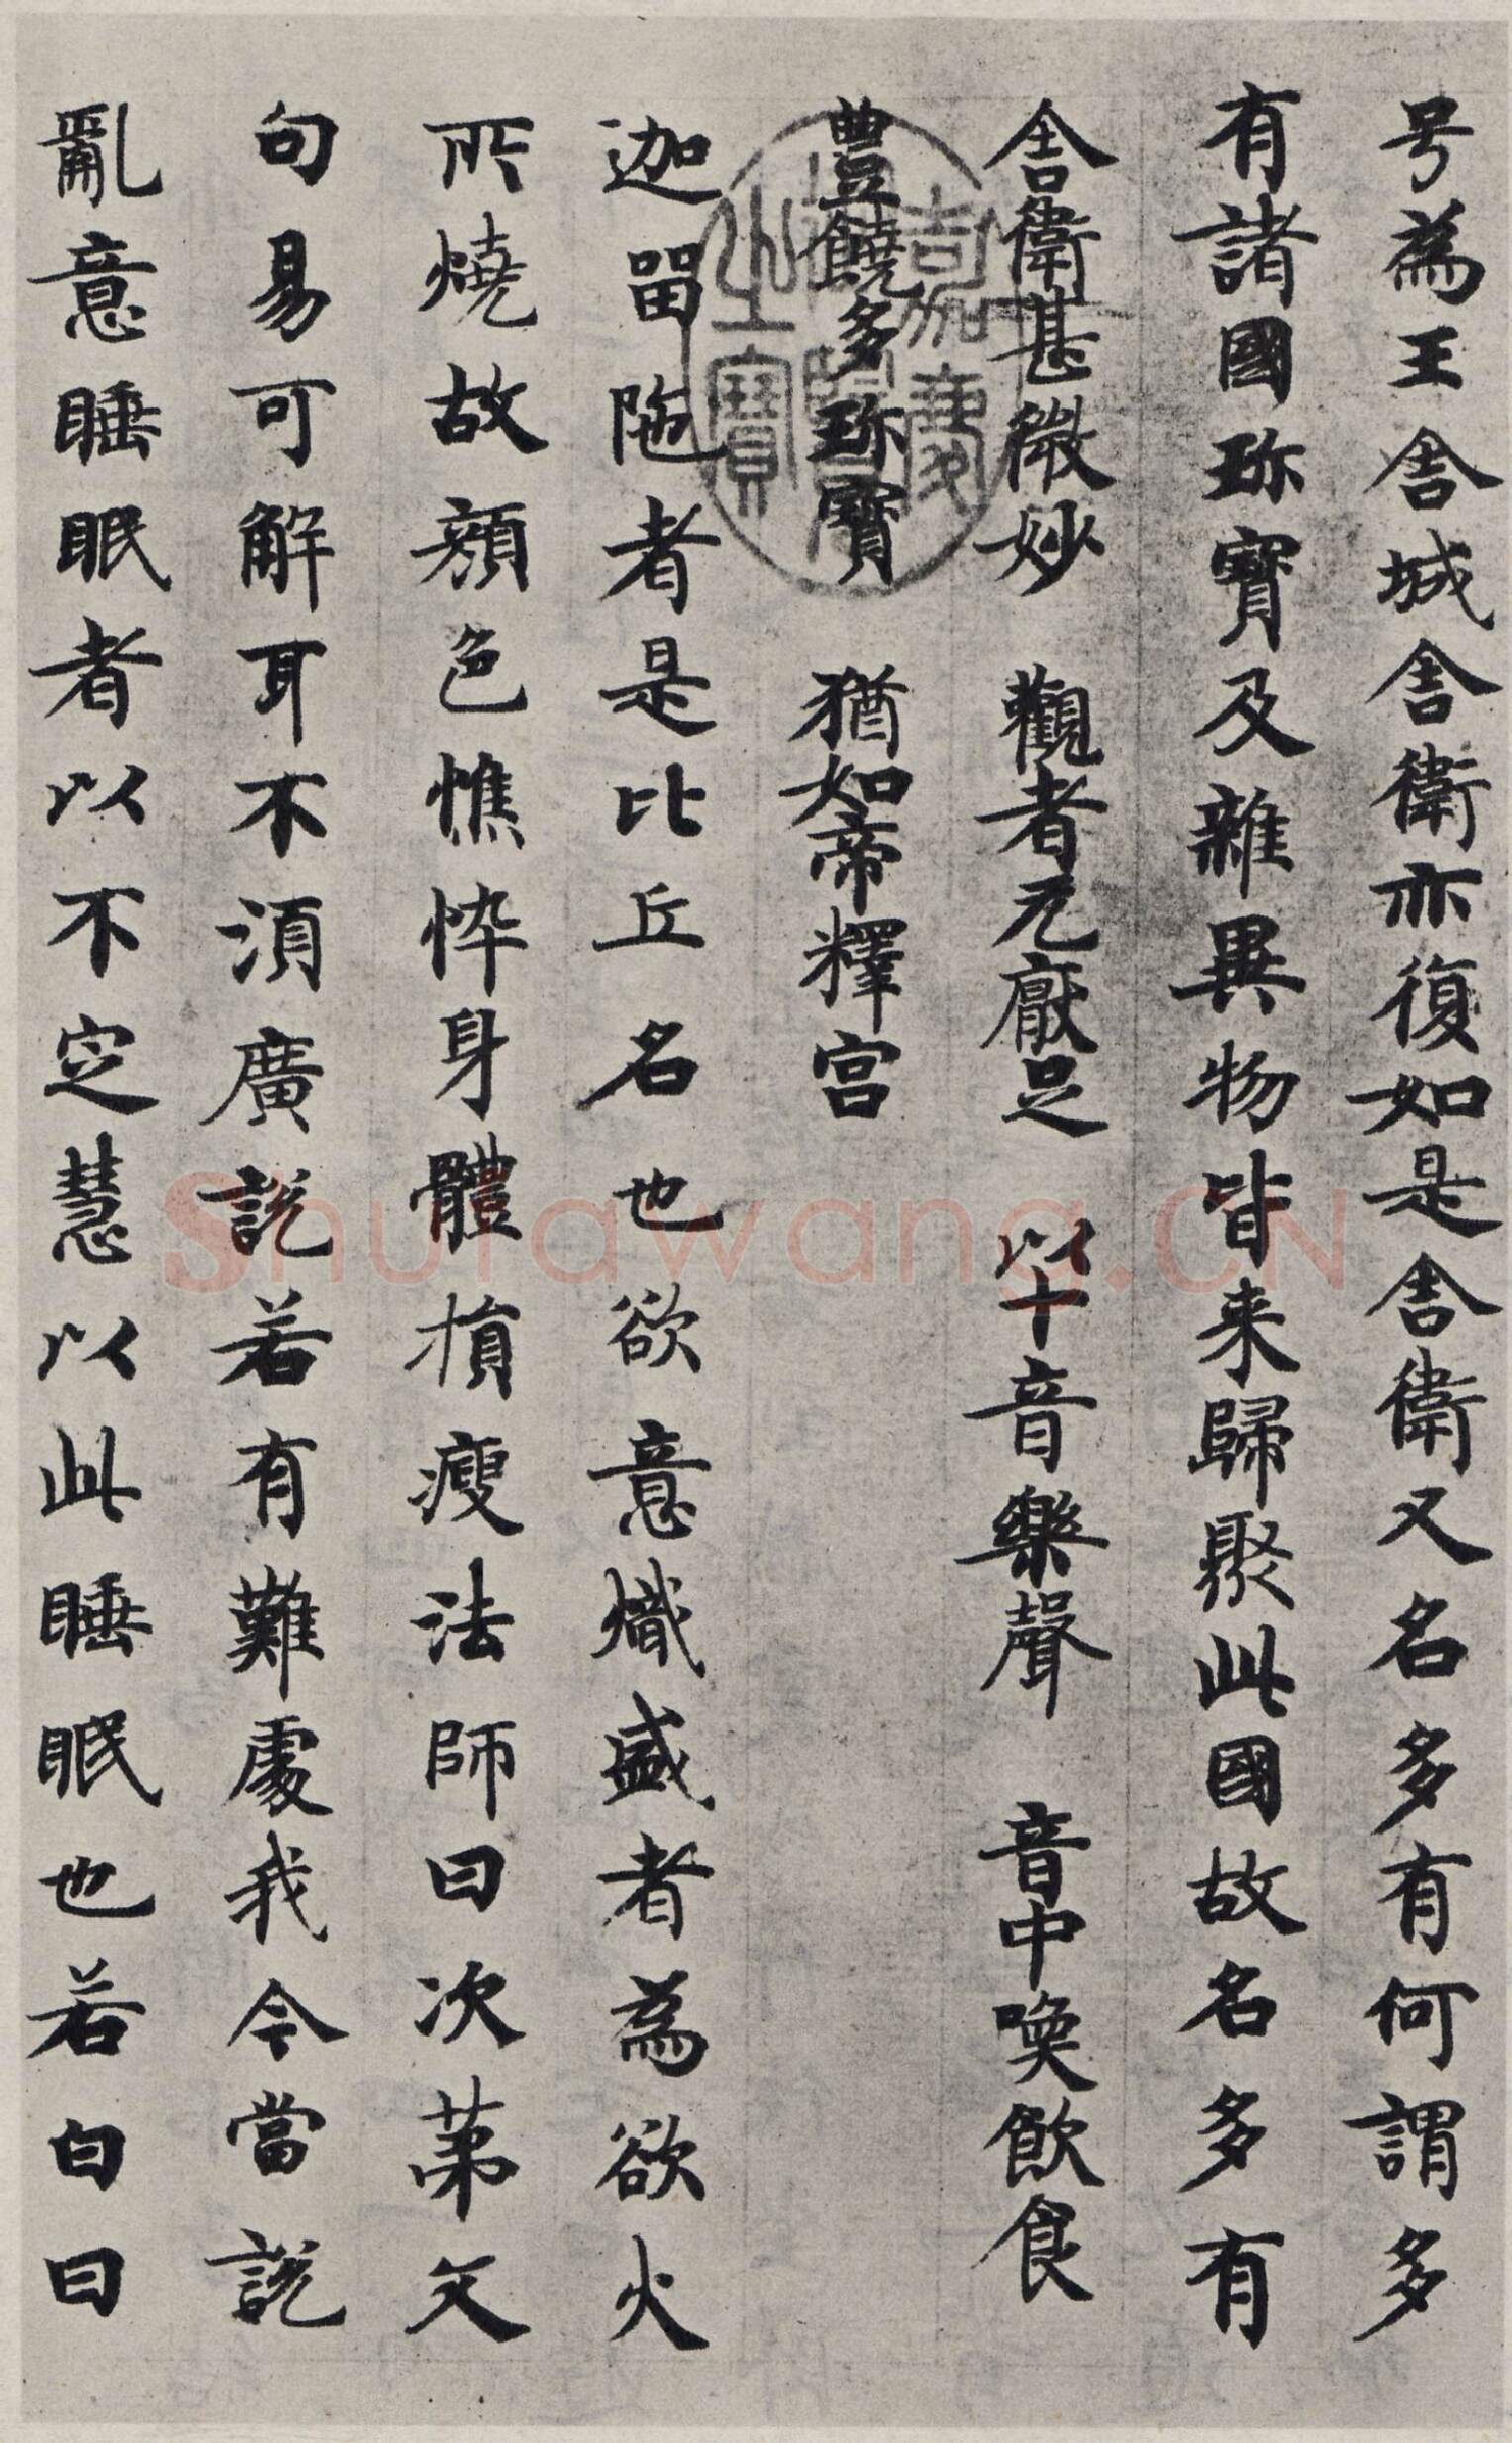 号為王舎城舎衛亦復如是舎衛又名多有何謂多
有諸國珎寳及雜異物皆来歸聚此國故名多有
舎衛甚微妙 觀者无厭足 以十音樂聲 音中喚飲食
豊饒多珎寳 猶如帝釋宫
迦留陁者是比丘名也欲意熾盛者為欲火
所燒故顔色憔悴身體損瘦法師曰次苐文
句易可解耳不湏廣説若有難處我今當説
亂意睡眠者以不定慧以此睡眠也若白日
嘉慶御覽之寶
shufawang.CN